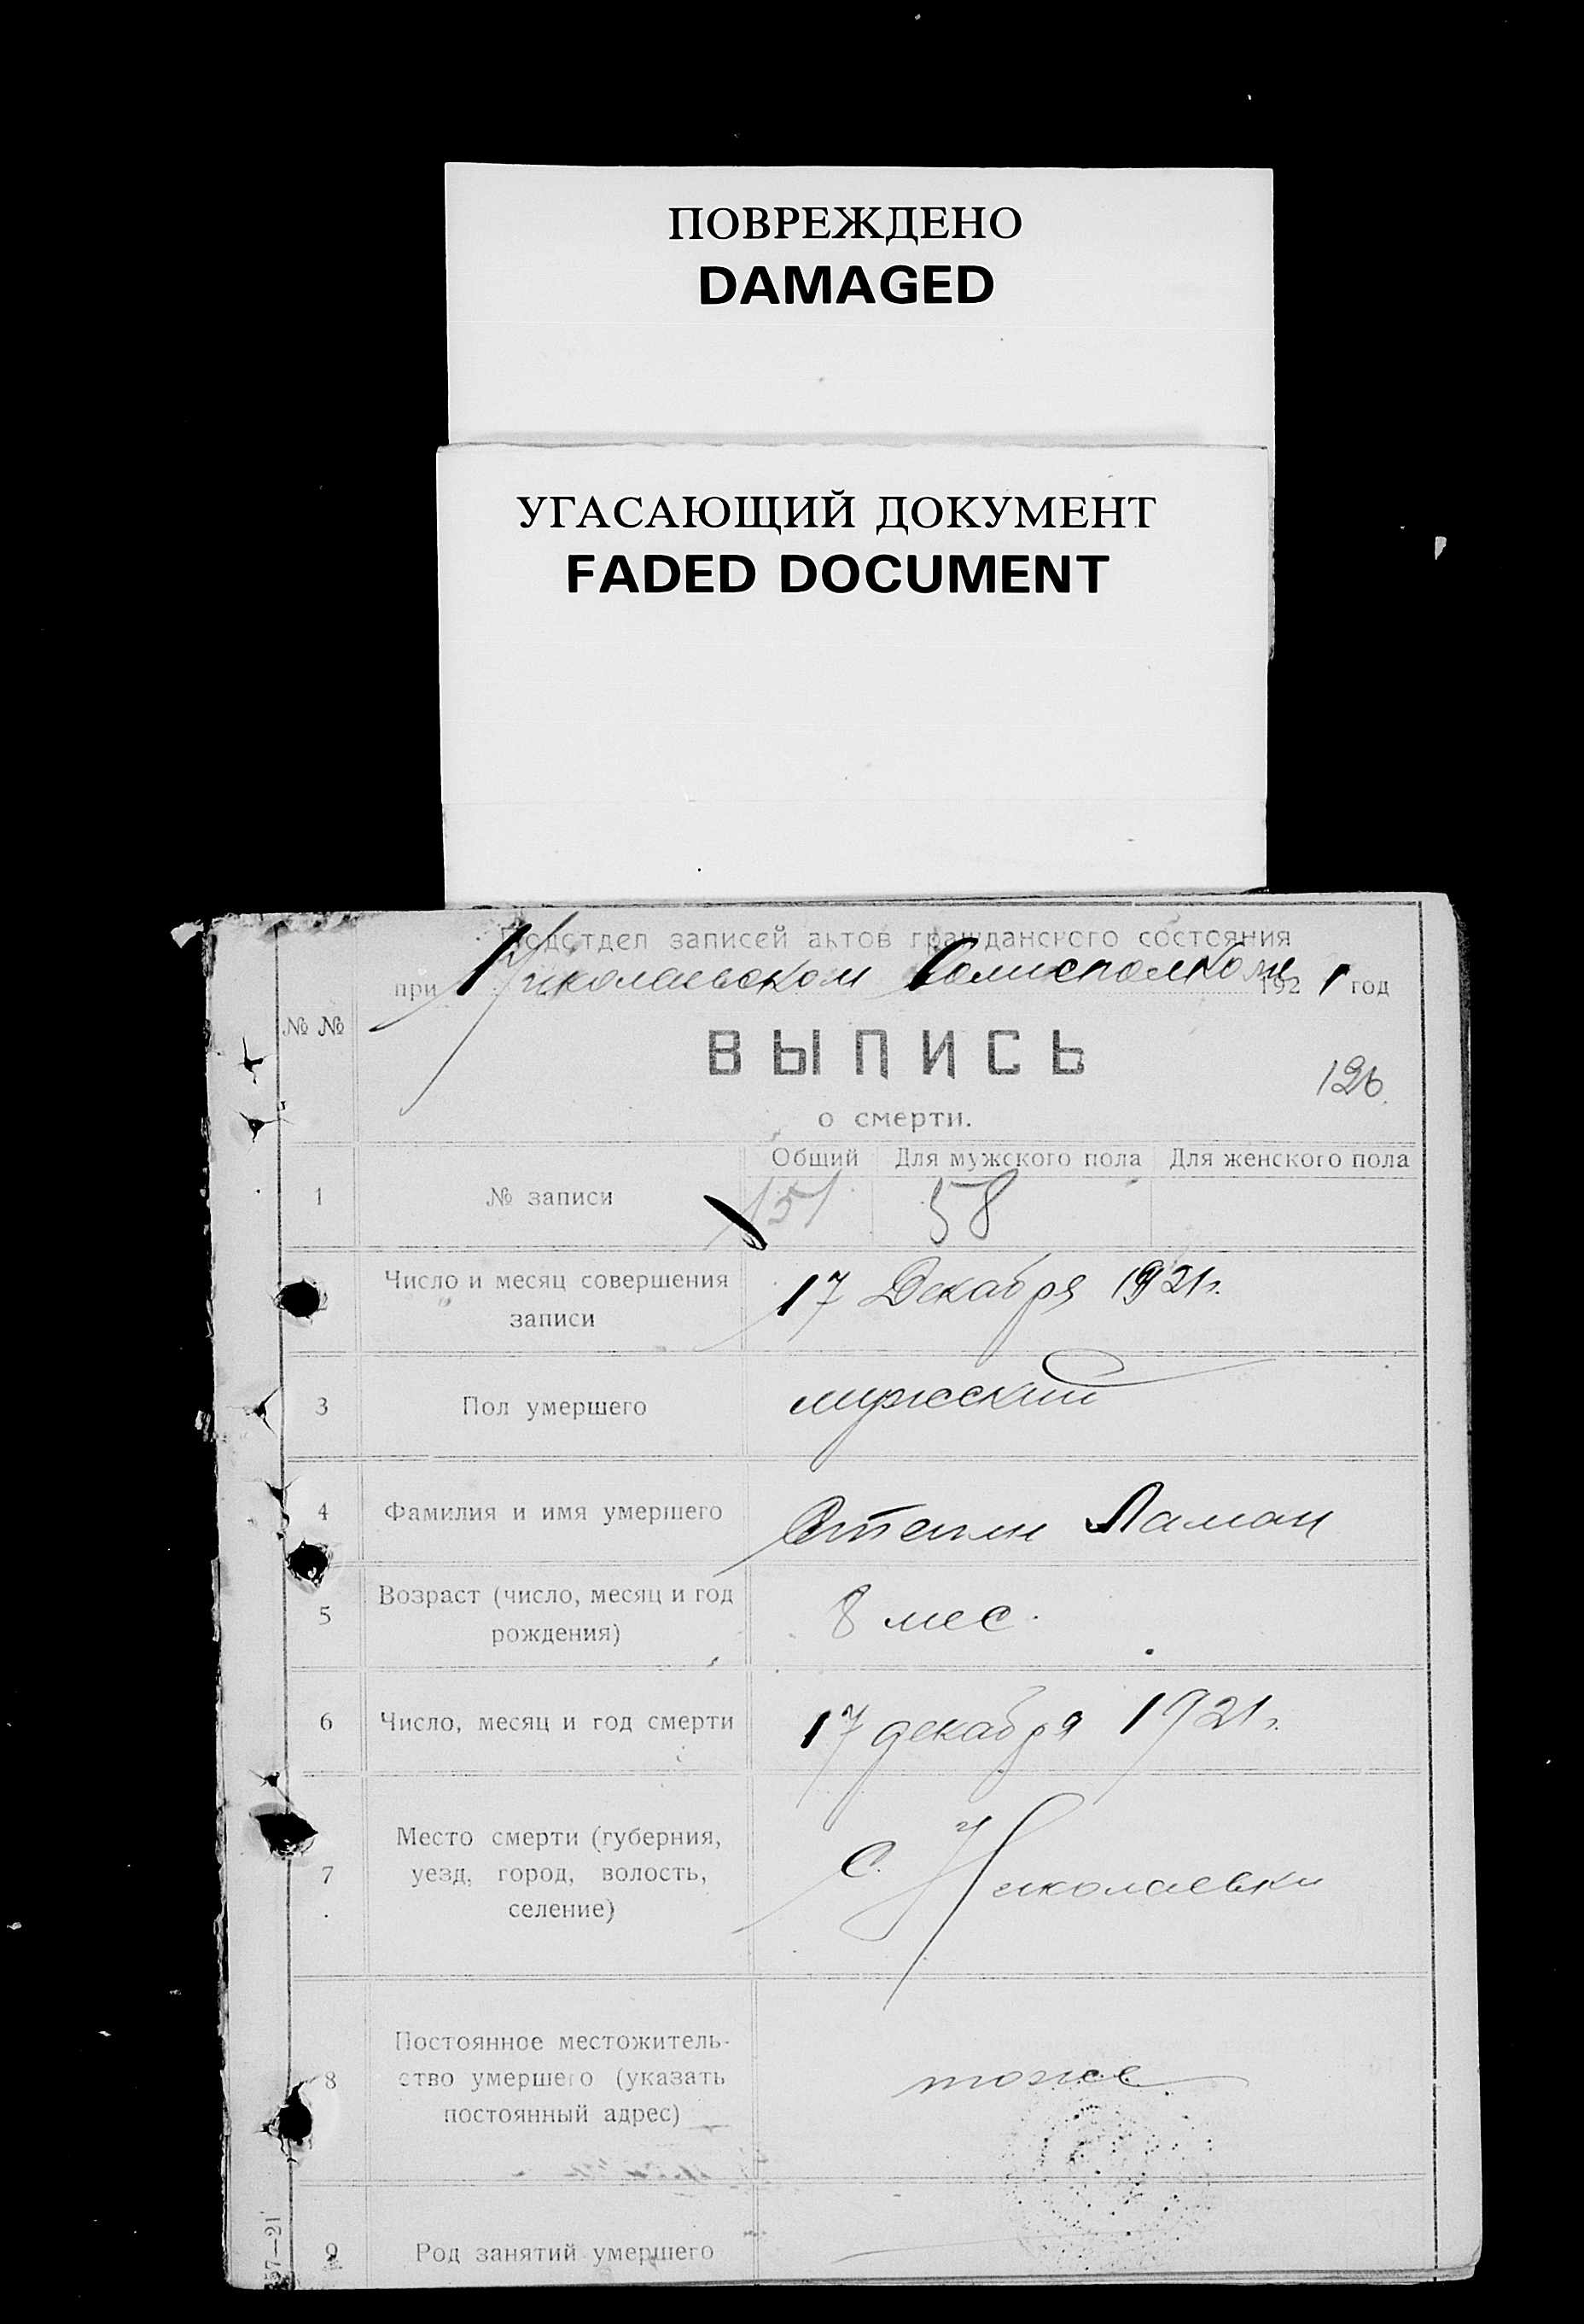 ПОВРЕЖДЕНО
DAMAGED
УГАСАЮЩИЙ ДОКУМЕНТ
FADED DOCUMENT
Подотдел записей актов гражданского состояния
при Николаевском Волисполкоме 1921 год
№ №
ВЫПИСЬ
126
о смерти.
Общий Для мужского пола Для женского пола
1 № записи 151 58
Число и месяц совершения
записи
17 Декабря 1921 г.
3 Пол умершего мужский
4 Фамилия и имя умершего
5 Возраст (число, месяц и год
рождения)
8 мес.
6 Число, месяц и год смерти 17 декабря 1921 г.
Место смерти (губерния,
7 уезд, город, волость,
селение)
С. Николаевки
Постоянное местожитель-
8 ство умершего (указать
постоянный адрес)
тоже
9 Род занятий умершего
57—21